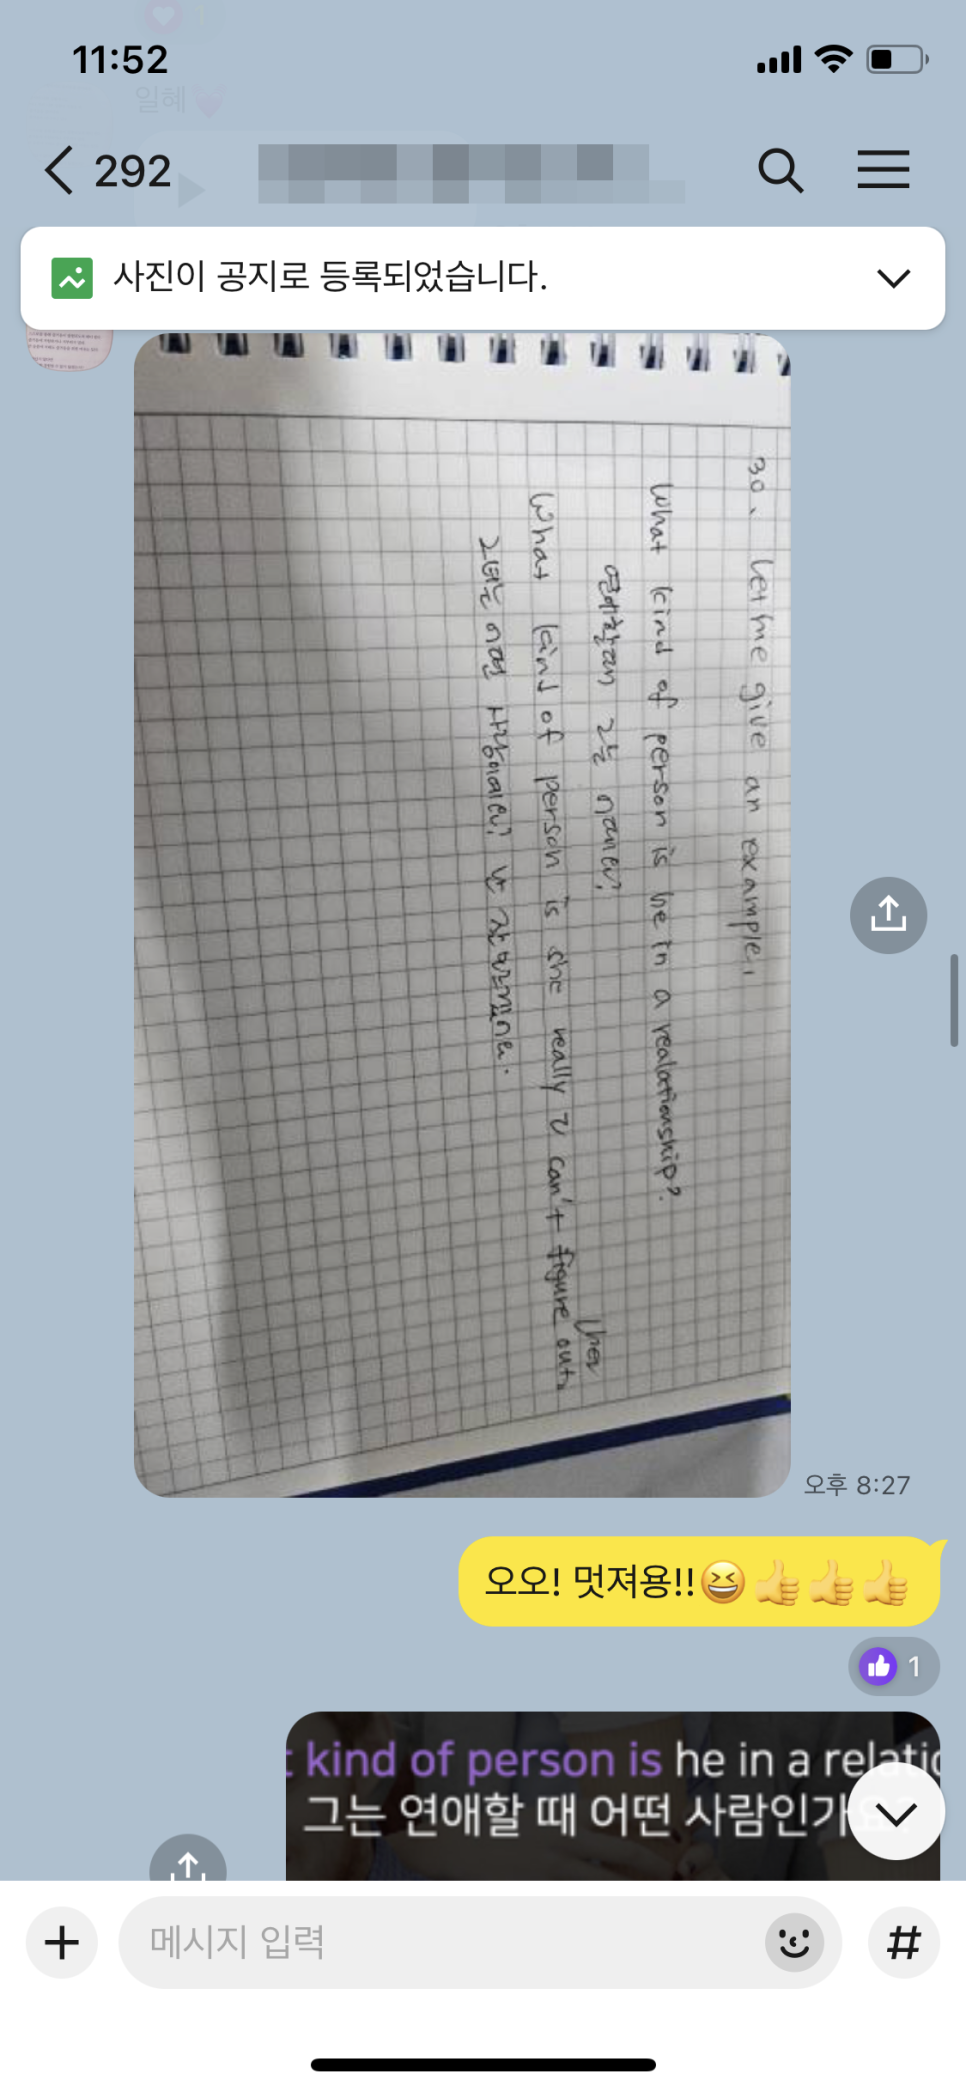 11:52
일혜
292
사진이 공지로 등록되었습니다.
30. Let me give an example..
What kind of person is he in a realationship?
연애할때 그는 어때?
What kind of person is she really ~ can't figure out.
her
그녀는 어떤 사람이야? 난 잘 모르겠어.
오후 8:27
오오! 멋져용!!
1
kind of person is he in a relatio
그는 연애할 때 어떤 사람인가요?
메시지 입력
#